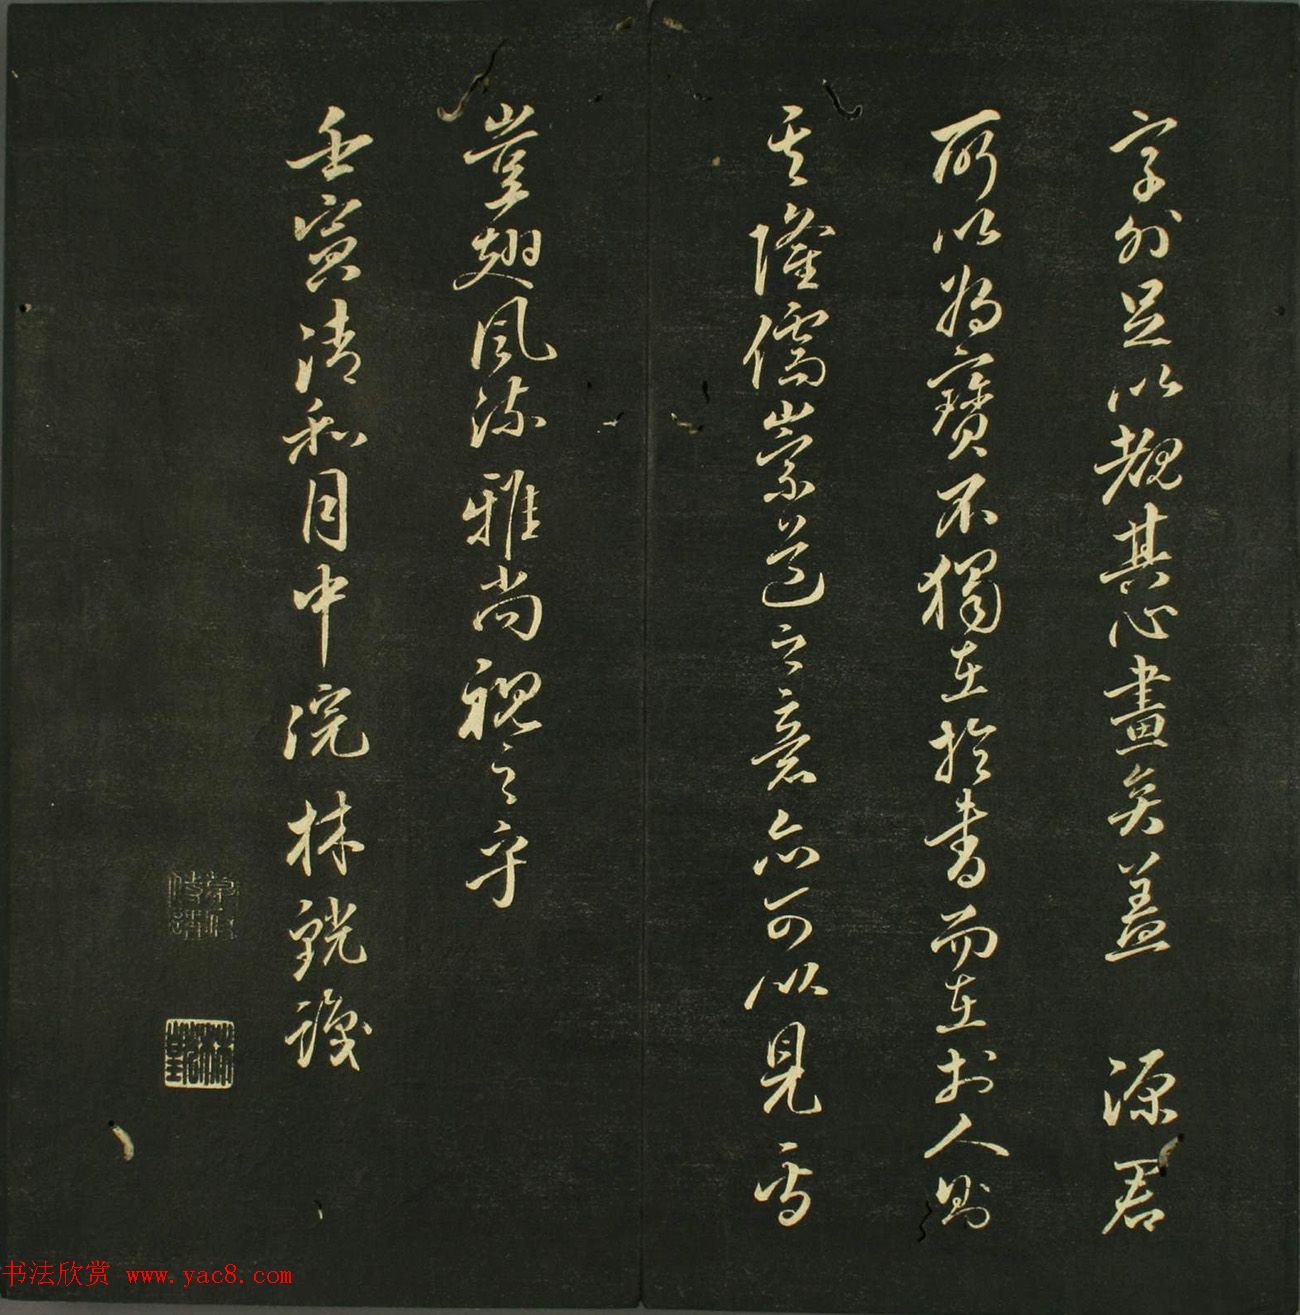 字外足以觀其心畫矣蓋 源君
所以為寶不獨在於書而在於人則
其隆儒崇道之意亦可以見焉
豈翅風流雅尚視之乎
壬寅清和月中浣 林銑識
书法欣赏 www.yac8.com